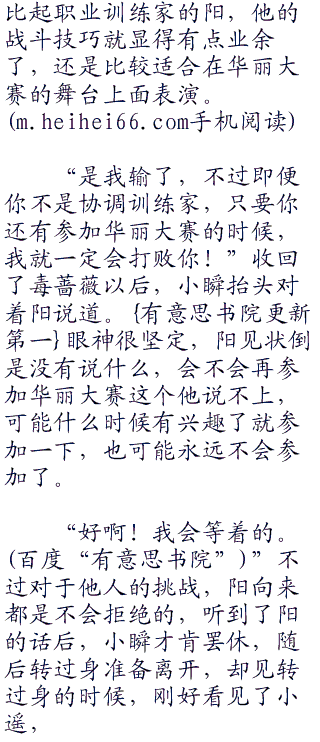 比起职业训练家的阳，他的
战斗技巧就显得有点业余
了，还是比较适合在华丽大
赛的舞台上面表演。
(m.heihei66.com手机阅读)
“是我输了，不过即便
你不是协调训练家，只要你
还有参加华丽大赛的时候，
我就一定会打败你！”收回
了毒蔷薇以后，小瞬抬头对
着阳说道。{有意思书院更新
第一}眼神很坚定，阳见状倒
是没有说什么，会不会再参
加华丽大赛这个他说不上，
可能什么时候有兴趣了就参
加一下，也可能永远不会参
加了。
“好啊！我会等着的。
(百度“有意思书院”)”不
过对于他人的挑战，阳向来
都是不会拒绝的，听到了阳
的话后，小瞬才肯罢休，随
后转过身准备离开，却见转
过身的时候，刚好看见了小
遥，